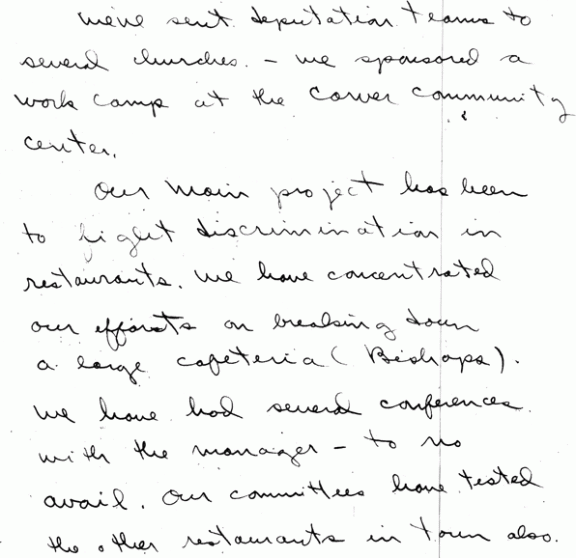 We've sent deputation teams to
several churches. - we sponsored a
work camp at the Carver community
center.
Our main project has been
to fight discrimination in
restaurants. We have concentrated
our efforts on breaking down
a large cafeteria (Bishops).
We have had several conferences
with the manager - to no
avail. Our committees have tested
the other restaurants in town also.